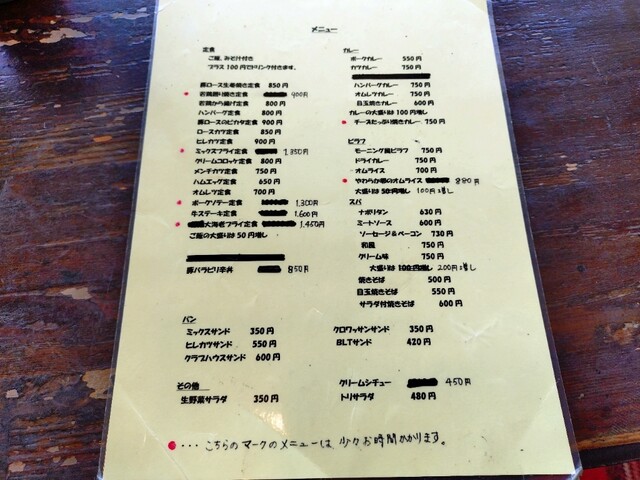 メニュー
定食
ご飯、みそ汁付き
プラス100円でドリンク付きます。
豚ロース生姜焼き定食 850円
● 若鶏照り焼き定食 900円
若鶏から揚げ定食 800円
ハンバーグ定食 800円
豚ロースのピカタ定食 900円
ロースカツ定食 850円
ヒレカツ定食 900円
● ミックスフライ定食 1,350円
クリームコロッケ定食 800円
メンチカツ定食 750円
ハムエッグ定食 650円
オムレツ定食 700円
● ポークソテー定食 1,300円
牛ステーキ定食 1,600円
● 大海老フライ定食 1,450円
ご飯の大盛りは50円増し
豚バラピリ辛丼 850円
パン
ミックスサンド 350円
ヒレカツサンド 550円
クラブハウスサンド 600円
その他
生野菜サラダ 350円
カレー
ポークカレー 550円
カツカレー 750円
ハンバーグカレー 750円
オムレツカレー 750円
目玉焼きカレー 600円
カレーの大盛りは100円増し
● チーズたっぷり焼きカレー 750円
ピラフ
モーニング風ピラフ 750円
ドライカレー 750円
オムライス 700円
● やわらか卵のオムライス 880円
大盛りは50円増し 100円増し
スパ
ナポリタン 630円
ミートソース 600円
ソーセージ&ベーコン 730円
和風 750円
クリーム味 750円
大盛りは100円増し 200円増し
焼きそば 500円
目玉焼きそば 550円
サラダ付焼きそば 600円
クロワッサンサンド 350円
BLTサンド 420円
クリームシチュー 450円
トリサラダ 480円
●・・・こちらのマークのメニューは、少々お時間かかります。